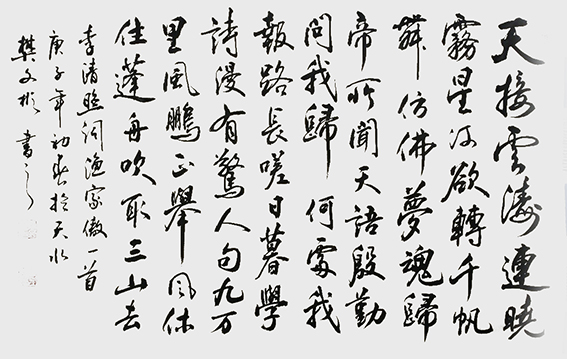 天接雲濤連曉
霧星河欲轉千帆
舞仿佛夢魂歸
帝所聞天語殷勤
問我歸何處我
報路長嗟日暮學
詩漫有驚人句九万
里風鵬正舉風休
住蓬舟吹取三山去
李清照詞漁家傲一首
庚子年初春於天水
樊文彬書之